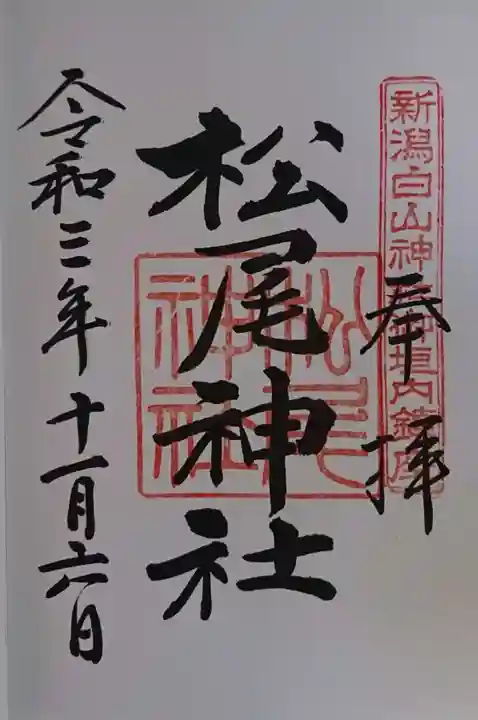 新潟白山神社御境内鎮座
奉拝
松尾神社
松尾神社
令和三年十一月六日